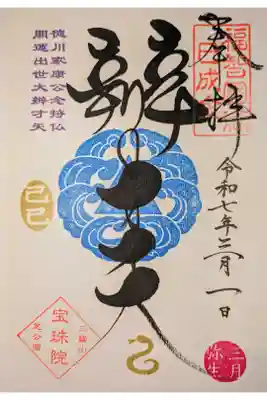 奉拝
令和七年三月一日
三月
弥生
辯才天
徳川家康公念持仏
開運出世大辨才天
己巳
三縁山
宝珠院
芝公園